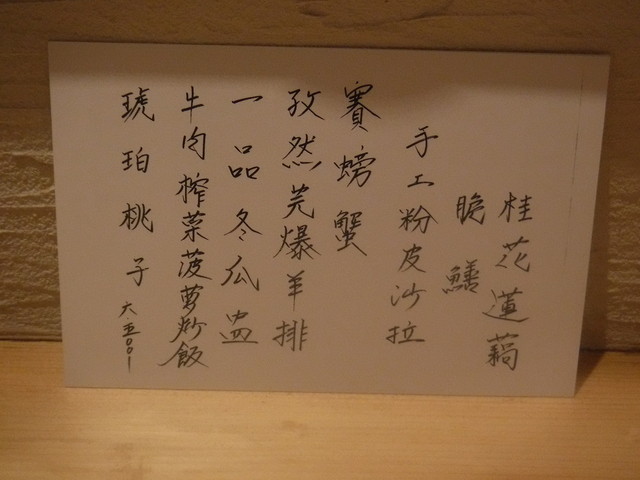 桂花蓮藕
脆鱔
手工粉皮沙拉
賽螃蟹
孜然芫爆羊排
一品冬瓜盅
牛肉榨菜菠萝炒飯
琥珀桃子 六.五〇〇